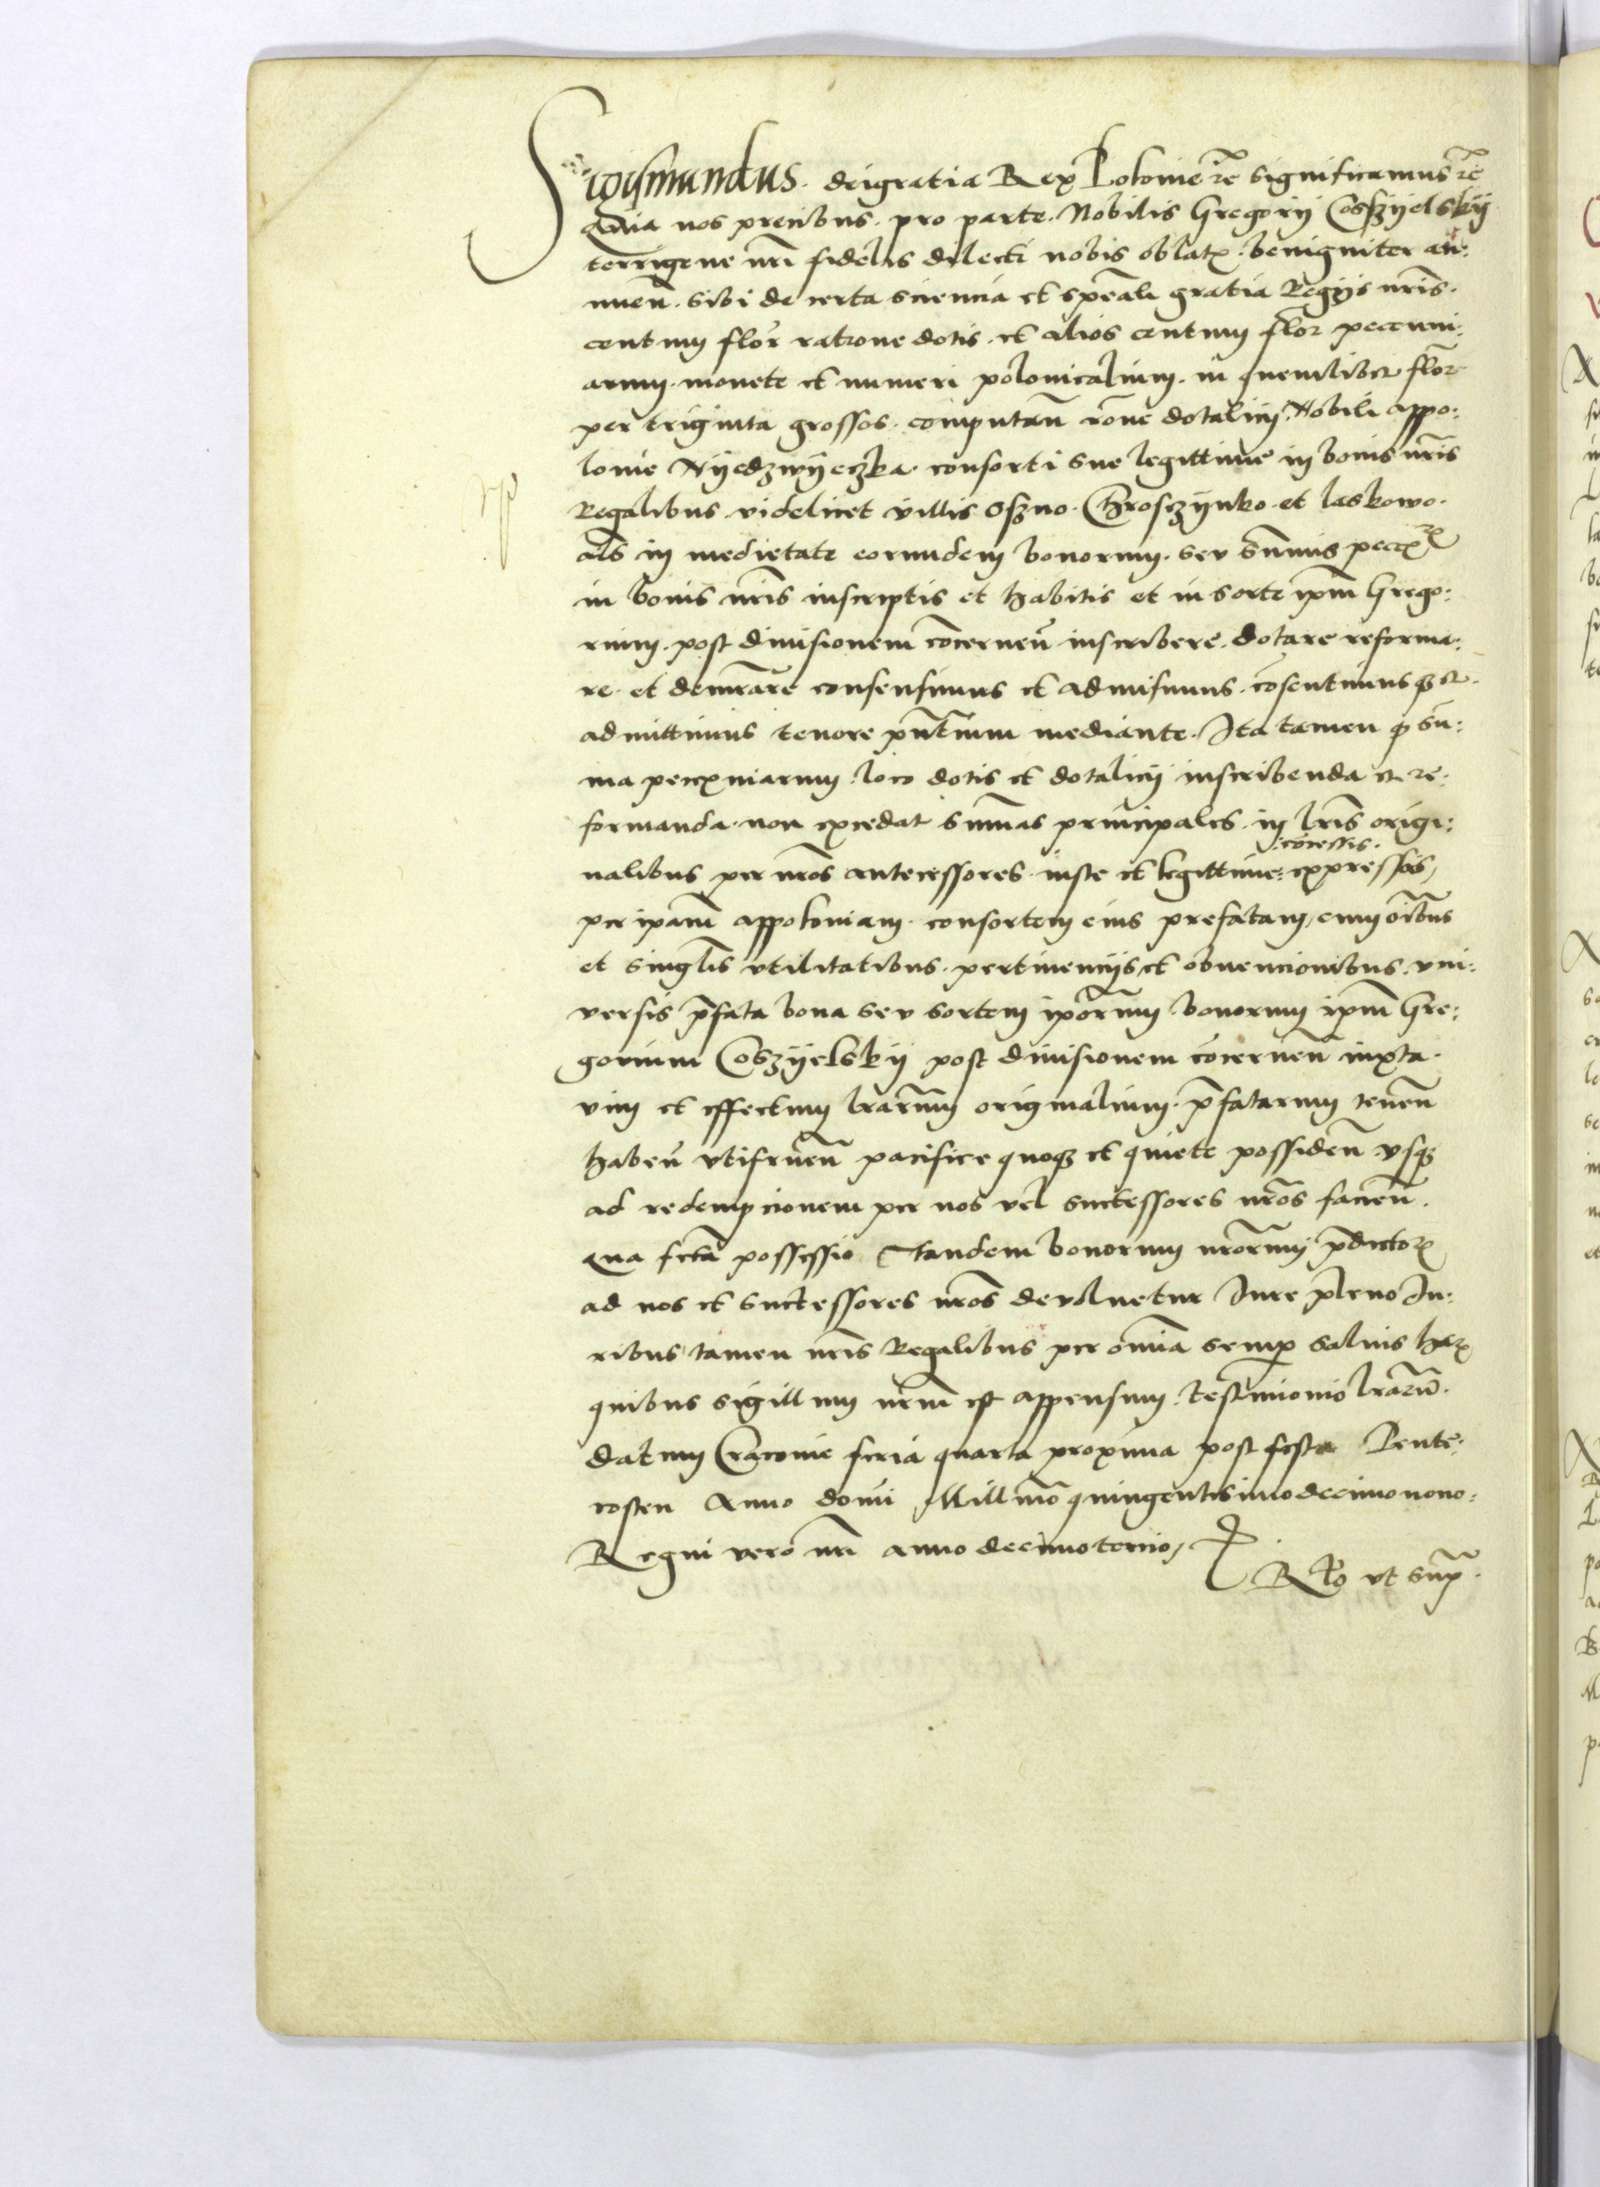 Sigismundus. dei gratia Rex Polonie rē significamus rē
Quia nos precibus. pro parte. Nobilis Gregorij Coszyelskij
terrigene nrī fidelis dilecti nobis oblatꝝ. benigniter an:
nuen̄. sibi de certa sciencia et spēali gratia Regijs nrīs.
centum flor̄ ratione dotis. et alios centum flor̄ peccuni:
arum. monete et numeri polonicalium. in quemlibet flor̄
per triginta grossos. computan̄ rōne dotalicij. Nobili appo:
lonie Nyedzwyeczka. consorti sue legittime in bonis nrīs
Regalibus. videlicet villis Oszno. Chrosczynko. et laskowo.
als in medietate eorundem bonorum. seu sūmis pecc
in bonis nrīs inscriptis et habitis et in sorte ipm̄ Grego:
rium. post divisionem cōcernen̄ inscribere. dotare reforma:
re. et demrāre consensimus et admisimus. cōsentimusqꝫ et
admittimus tenore pn̄tium mediante. Ita tamen ꝙ sū:
ma peccuniarum. loco dotis et dotalicij inscribenda et re.
formanda. non excedat sūmas principales. in lrīs origi:
:cōcessis.
nalibus per nrōs antecessores. iuste et legittime: expressas,
per ipam̄ appoloniam. consortem eius prefatam, cum oībus
et singlīs vtilitatibus. pertinencijs et obuencionibus. vni:
versis p̄fata bona seu sortem ipōrum bonorum ipm̄ Gre:
gorium Coszyelskij post divisionem cōcernen̄ iuxta.
vim et effectum lrārum originalium. p̄fatarum tenen̄
haben̄ vtifruen̄ pacifice quoqꝫ et quiete possiden̄ vsqꝫ
ad redempcionem per nos vel successores nrōs facien̄.
Qua fctā possessio tandem bonorum nrōrum p̄dictoꝝ
ad nos et successores nrōs devoluetur Iure pleno Iu:
ribus tamen nrīs Regalibus per omīa semꝑ salvis haꝝ
quibus sigillum nrūm est appensum. testimonio lrārū.
datum Cracovie feria quarta proxima post festa Pente:
costen Anno domī Millmō quingentesimo decimonono.
Regni vero nrī anno decimotercio,
R Rō vt supᵃ.